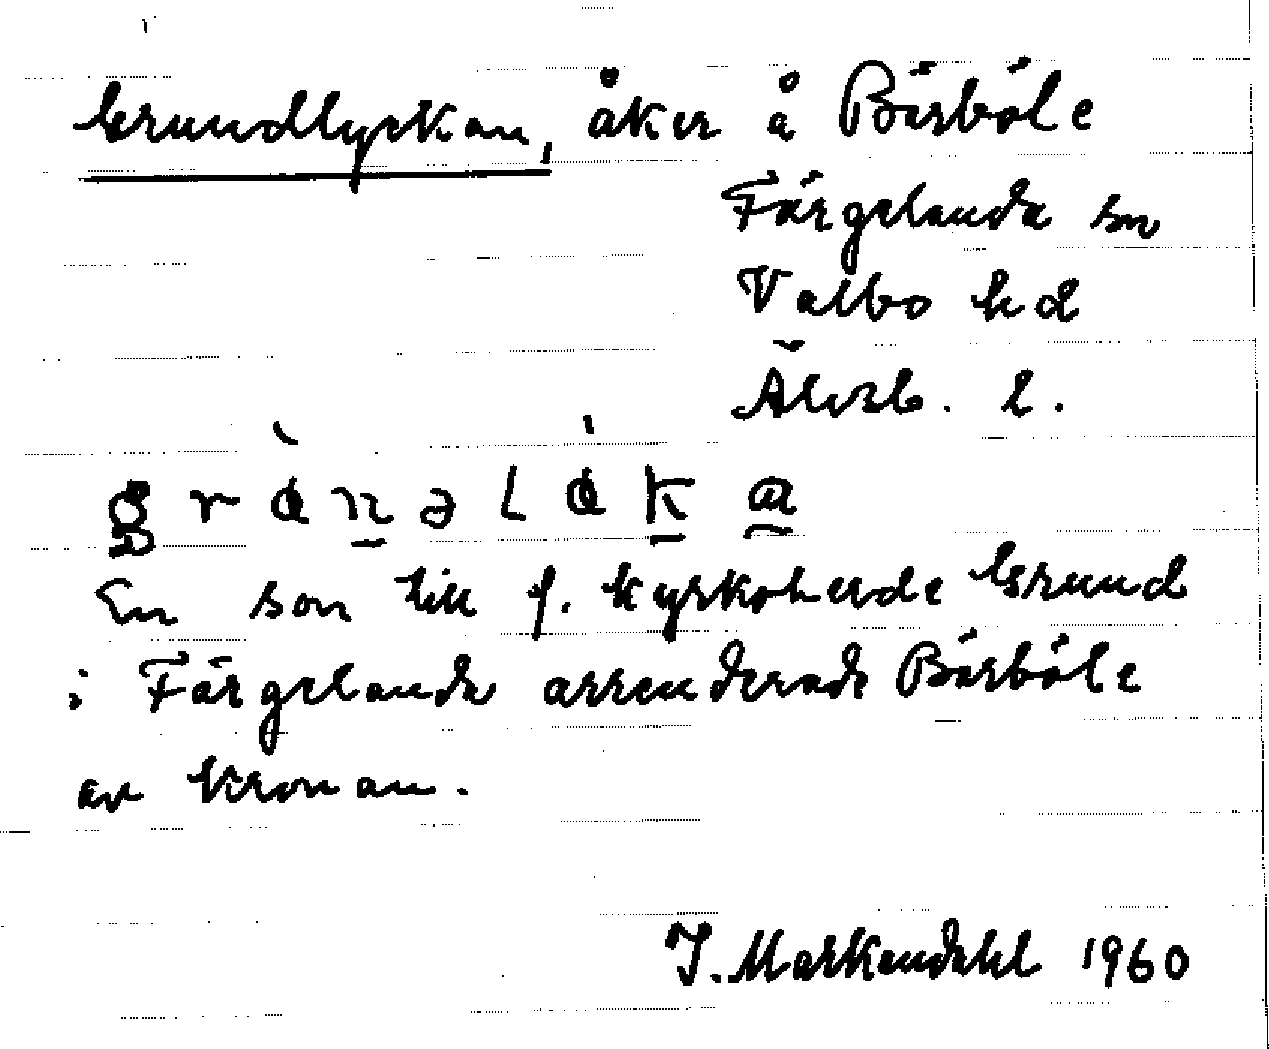 Grundlyckan, åker å Bärböle
Färgelanda sn
Valbo hd
Älvsb. l.
En son till f. kyrkoherde Grund
i Färgelanda arrenderade Bärböle
av Kronan.
J. Markendahl 1960